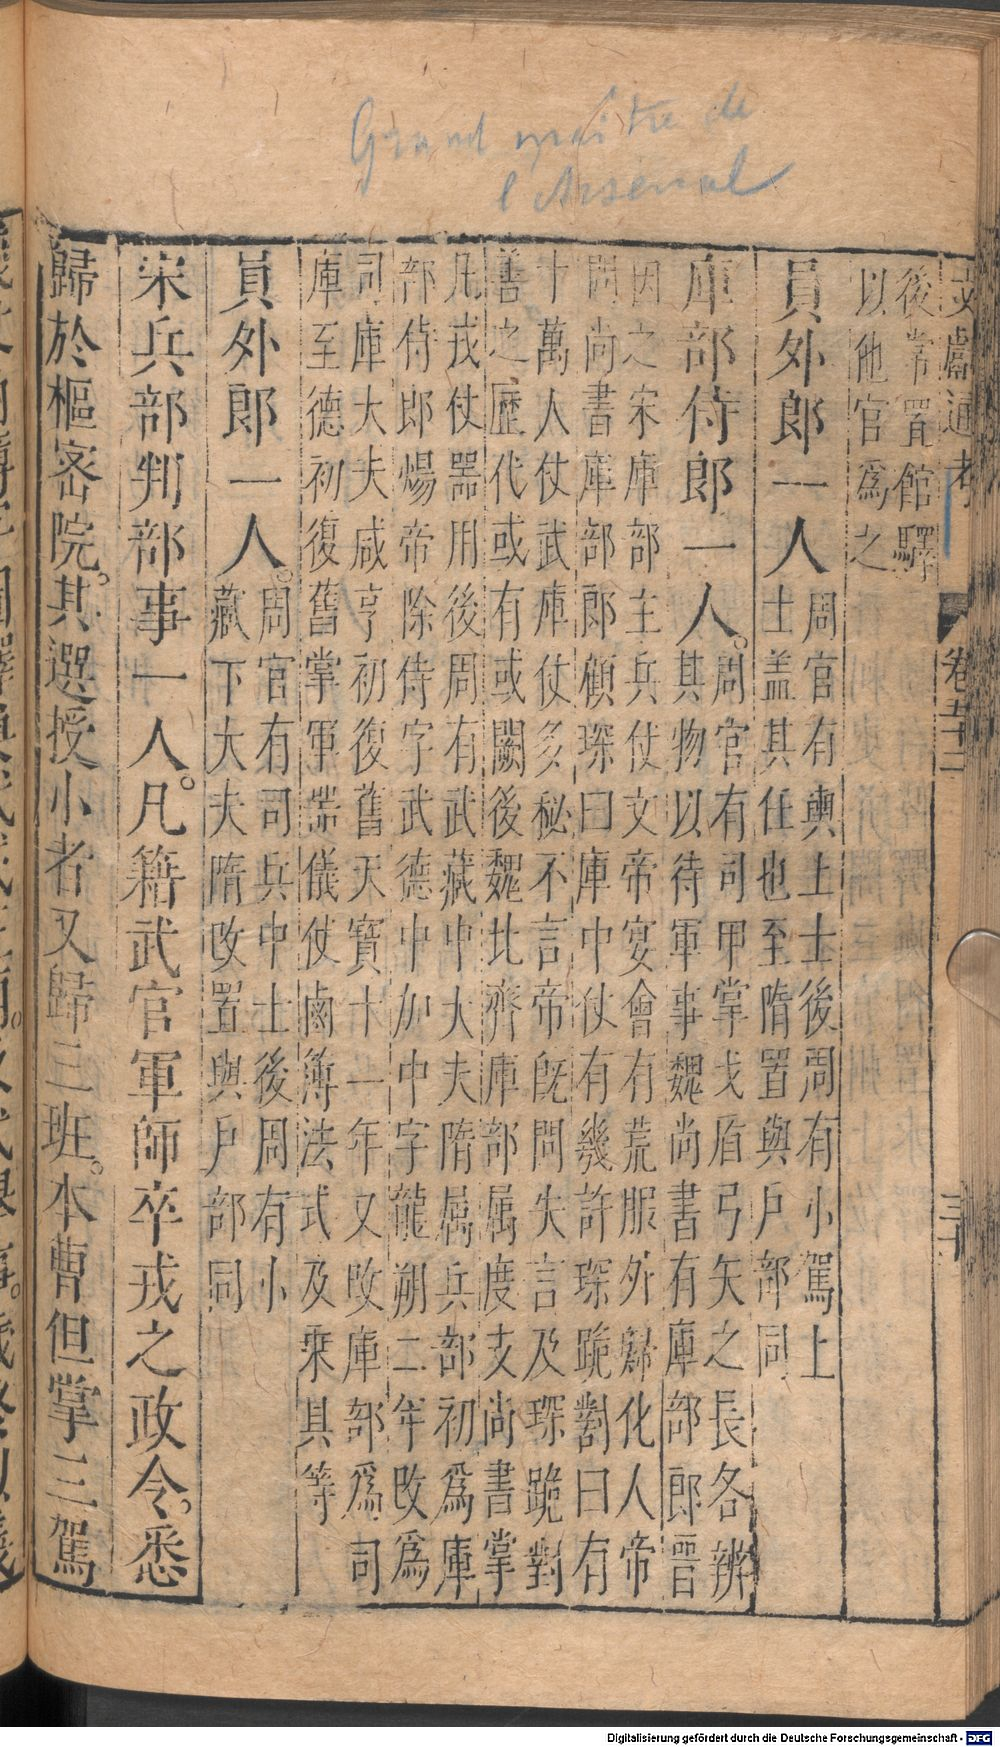 Grand maître de
l'Arsenal
文獻通考
卷五十二
三十
後常置館驛
以他官爲之
員外郎一人
周官有輿上士後周有小駕上
士盖其任也至隋置與戶部同
庫部侍郎一人。
周官有司甲掌戈盾弓矢之長各辨
其物以待軍事魏尚書有庫部郎晉
因之宋庫部主兵仗文帝宴會有荒服外歸化人帝
問尚書庫部郎顧琛曰庫中仗有幾許琛跪對曰有
十萬人仗武庫仗多秘不言帝旣問失言及琛跪對
善之歷代或有或闕後魏北齊庫部属度支尚書掌
凡戎仗噐用後周有武藏中大夫隋属兵部初爲庫
部侍郎煬帝除侍字武德中加中字龍朔二年改爲
司庫大夫咸亨初復舊天寶十一年又改庫部爲司
庫至德初復舊掌軍噐儀仗鹵簿法式及乘具等
員外郎一人。
周官有司兵中士後周有小
藏下大夫隋改置與戶部同
宋兵部判部事一人。凡籍武官軍師卒戎之政令。悉
歸於樞宻院。其選授小者又歸三班。本曹但掌三駕
Digitalisierung gefördert durch die Deutsche Forschungsgemeinschaft - DFG